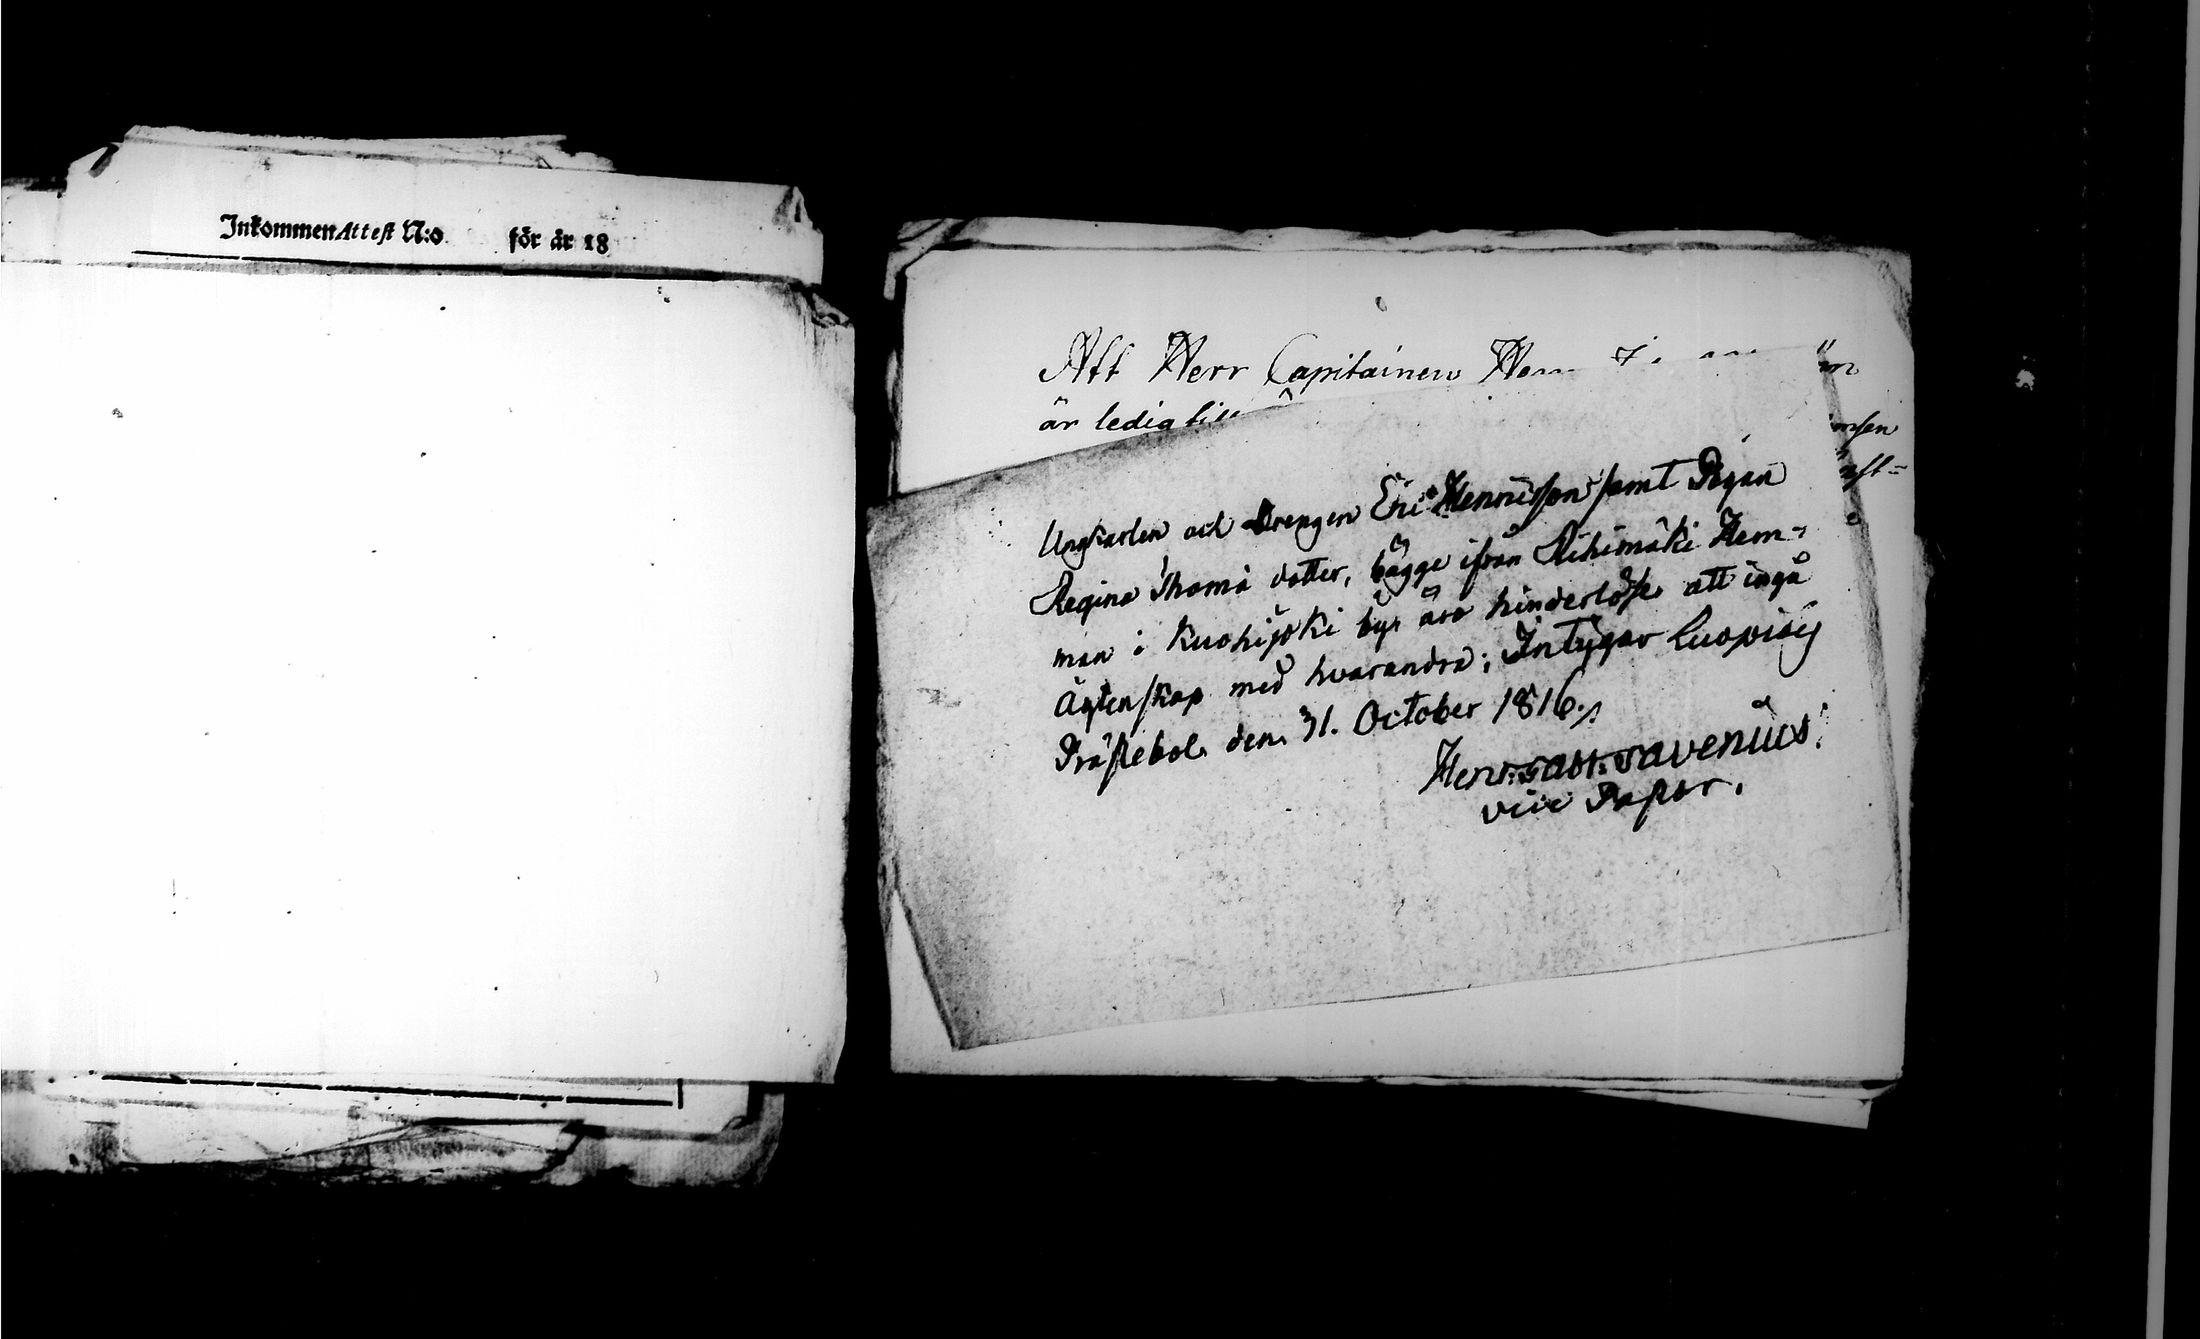 Inkommen Attest N:o för år 18
Att Herr Capitainen
är ledig till
Ungkarlen och Drengen Eric Henricsson samt Pigan
Regina Thomä dotter, bägge ifrån Riihimäki Hem-
man i Kuohijoki by, äro hinderlöse att ingå
Ägtenskap med hvarandra; Intygar Luopioby
Prästebol den 31. October 1816.
Henr: Gabr: Savenius.
vice Pastor.